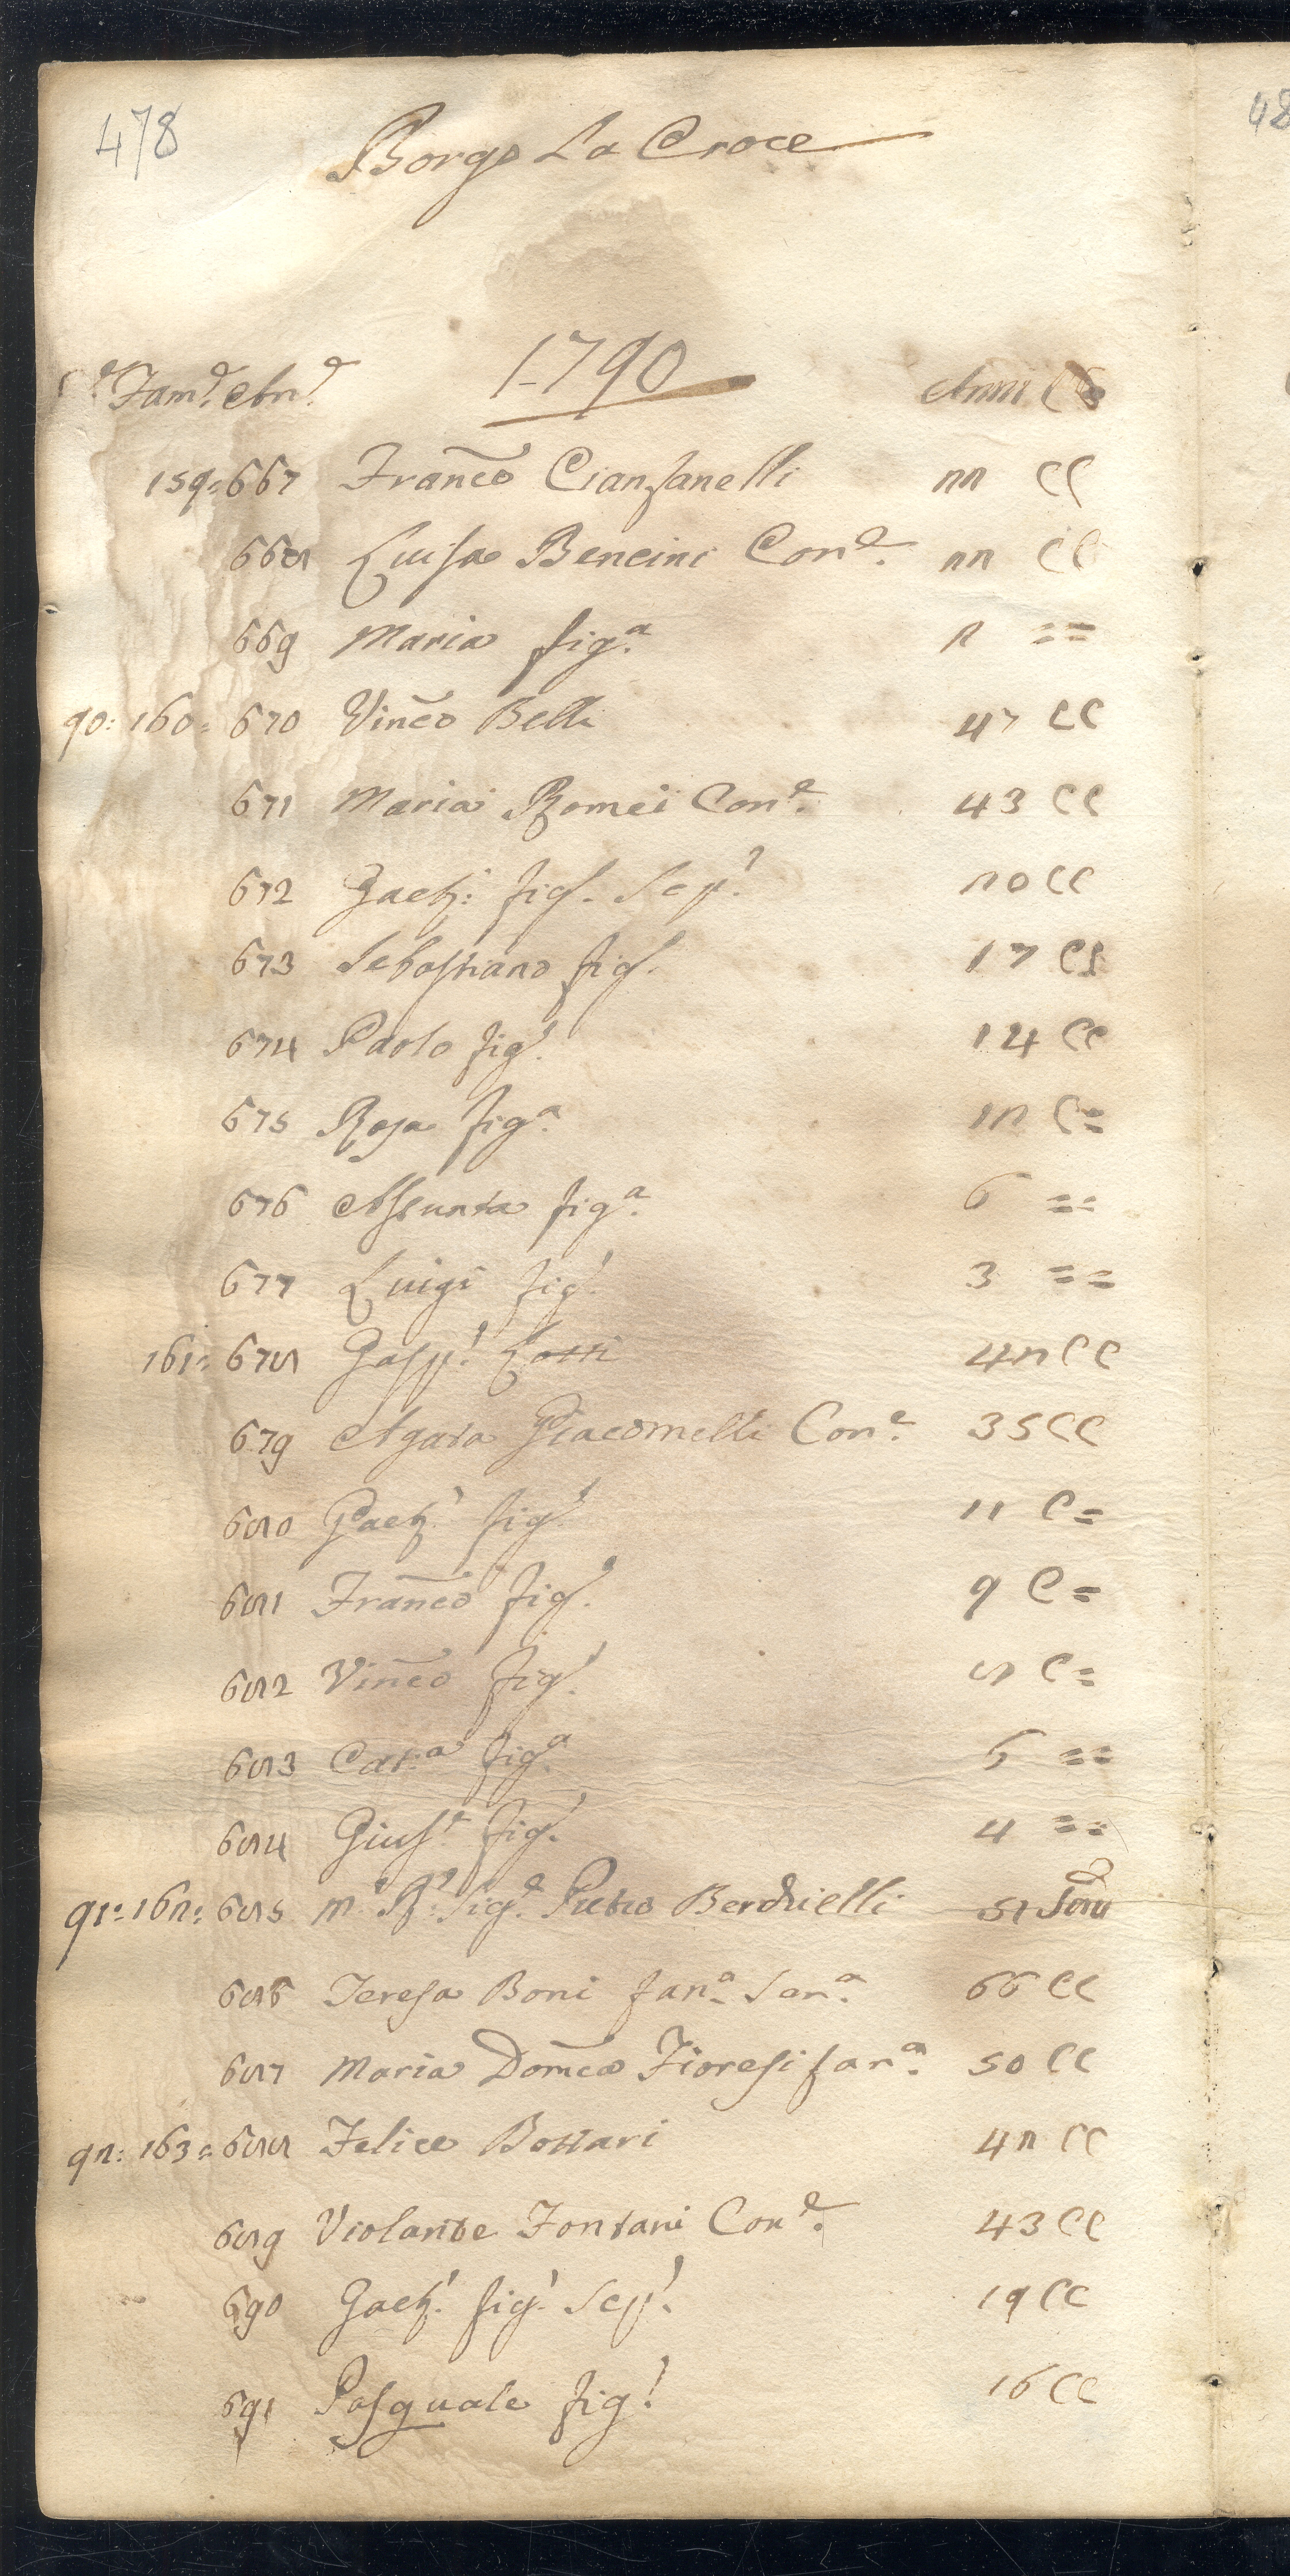 478
Borgo La Croce
1790
Fam.e An.e Anni CC
159= 667 Franc̄o Cianfanelli 22 CC
668 Luisa Bencini Con.e 22 CC
669 Maria fig.a 2 = =
90: 160= 670 Vinc̄o Belli 47 CC
671 Maria Romei Con.e 43 CC
672 Gaet.o figl. Sep.o 20 CC
673 Sebastiano figl. 17 CC
674 Paolo fig.o 14 CC
675 Rosa fig.a 12 C =
676 Assunta fig.a 6 = =
677 Luigi fig.o 3 = =
161= 678 Gasp.o Lotti 42 CC
679 Agata Giacomelli Con.e 35 CC
680 Gaet.o fig.o 11 C =
681 Franc̄o fig.o 9 C =
682 Vinc̄o fig.o 8 C =
683 Cat.a fig.a 6 = =
684 Gius.e fig.o 4 = =
91: 162= 685 M.o R.o Sig.e Pietro Berchielli 51
686 Teresa Boni fan.a San.a 66 CC
687 Maria Dom̄ca Fioresi fan.a 50 CC
92: 163= 688 Felice Bottari 42 CC
689 Violante Fontani Con.e 43 CC
690 Gaet.o fig.o Sep.o 19 CC
691 Pasquale fig.o 16 CC
48